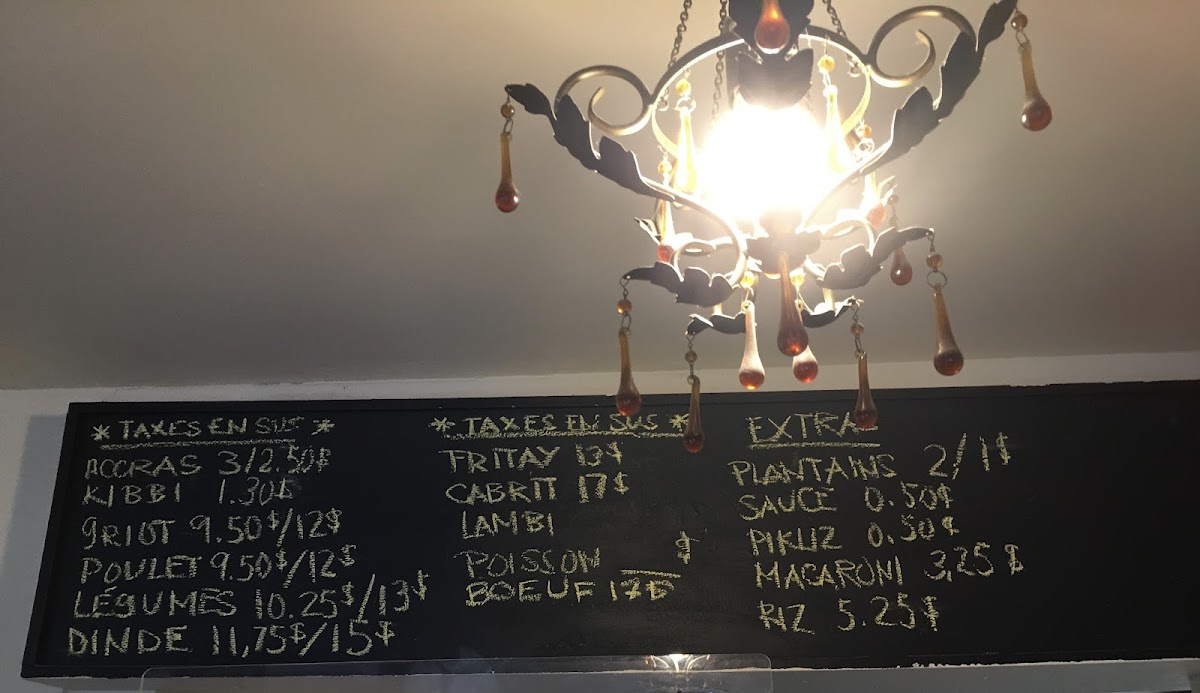 * TAXES EN SUS *
ACCRAS 3/2.50$
KIBBI 1.30$
GRIOT 9.50$/12$
POULET 9.50$/12$
LÉGUMES 10.25$/13$
DINDE 11,75$/15$
* TAXES EN SUS *
FRITAY 13$
CABRIT 17$
LAMBI
POISSON $
BOEUF 17$
EXTRA
PLANTAINS 2/1$
SAUCE 0.50$
PIKLIZ 0.50$
MACARONI 3,25$
RIZ 5.25$